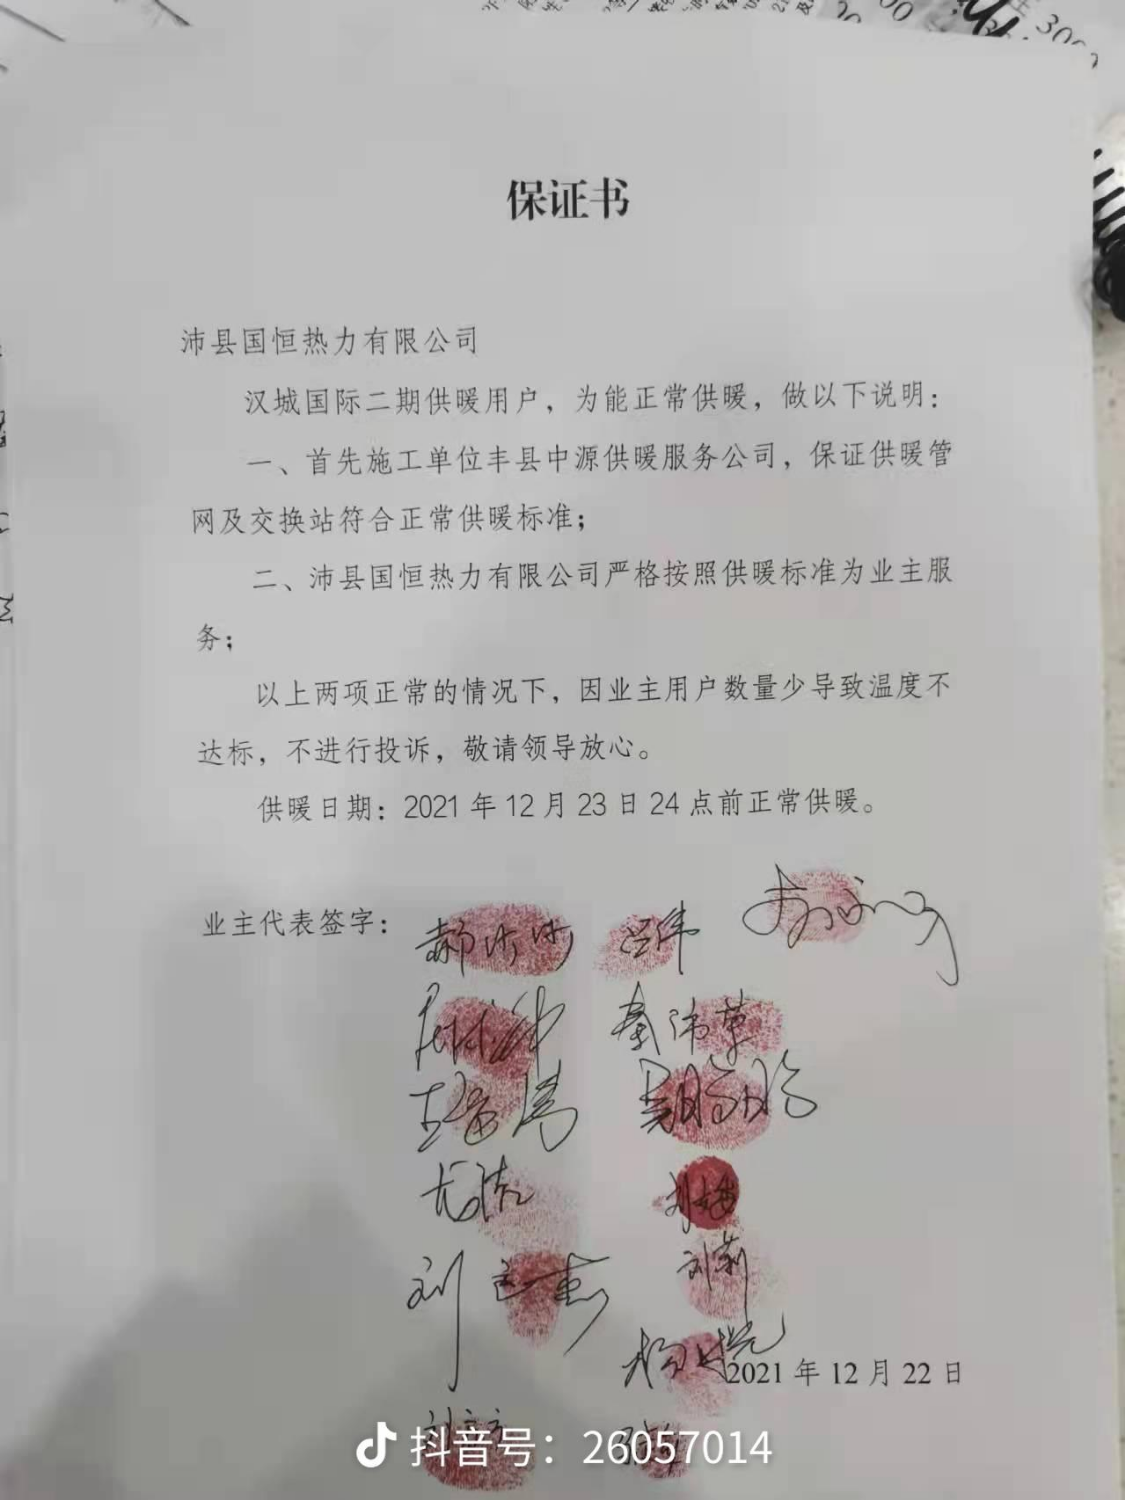 保证书
沛县国恒热力有限公司
汉城国际二期供暖用户，为能正常供暖，做以下说明：
一、首先施工单位丰县中源供暖服务公司，保证供暖管
网及交换站符合正常供暖标准；
二、沛县国恒热力有限公司严格按照供暖标准为业主服
务；
以上两项正常的情况下，因业主用户数量少导致温度不
达标，不进行投诉，敬请领导放心。
供暖日期：2021年12月23日24点前正常供暖。
业主代表签字：
刘莉
2021年12月22日
抖音号：26057014